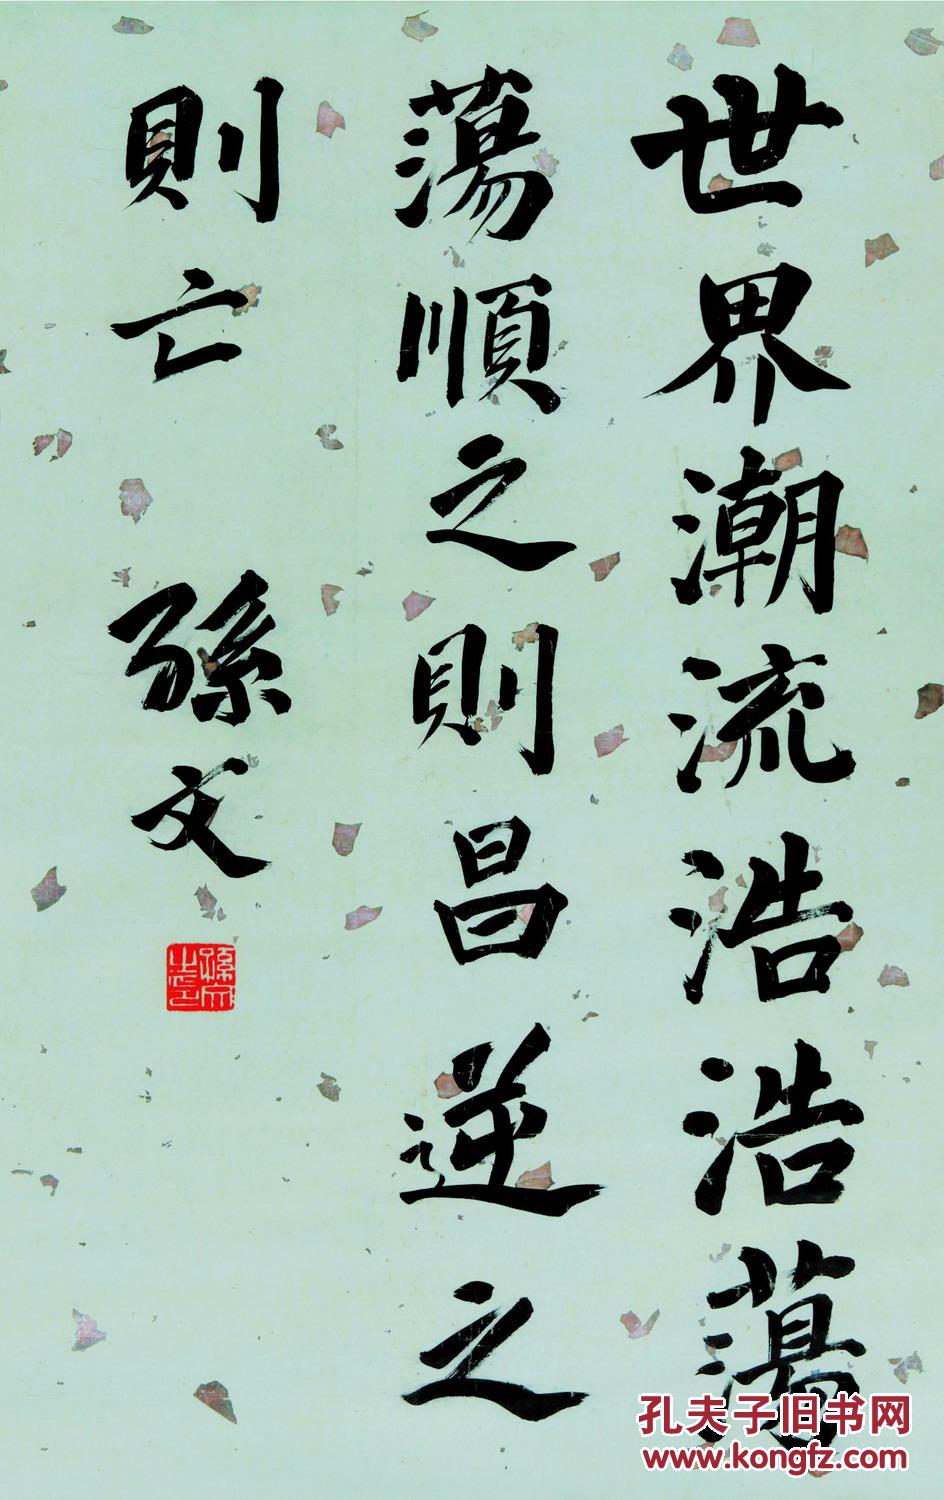 世界潮流浩浩蕩
蕩順之則昌逆之
則亡 孫文
孫文之印
孔夫子旧书网
www.kongfz.com